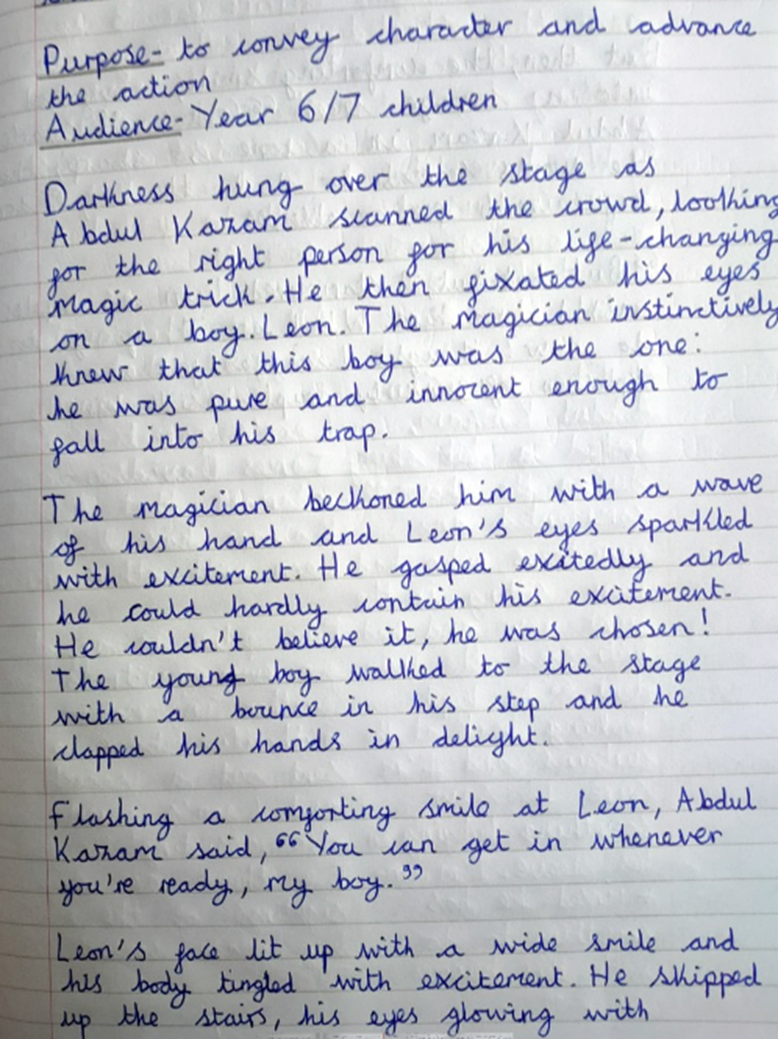 Purpose- to convey character and advance
the action
Audience-Year 6/7 children
Darkness hung over the stage as
Abdul Kazam scanned the crowd, looking
for the right person for his life-changing
magic trick. He then fixated his eyes
on a boy. Leon. The magician instinctively
knew that this boy was the one:
he was pure and innocent enough to
fall into his trap.
The magician beckoned him with a wave
of his hand and Leon's eyes sparkled
with excitement. He gasped excitedly and
he could hardly contain his excitement.
He couldn't believe it, he was chosen!
The young boy walked to the stage
with a bounce in his step and he
clapped his hands in delight.
Flashing a comforting smile at Leon, Abdul
Kazam said, “You can get in whenever
you're ready, my boy.”
Leon's face lit up with a wide smile and
his body tingled with excitement. He skipped
up the stairs, his eyes glowing with